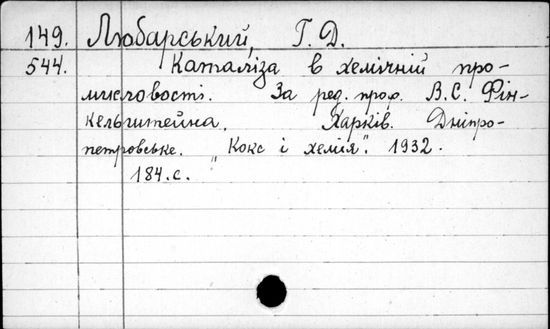 149. Любарський, Г. Д.
544. Каталіза в хемічній про-
мисловості. За ред. проф. В.С. Фін-
кельштейна. Харків. Дніпро-
петровське. "Кокс і хемія". 1932.
184.с.